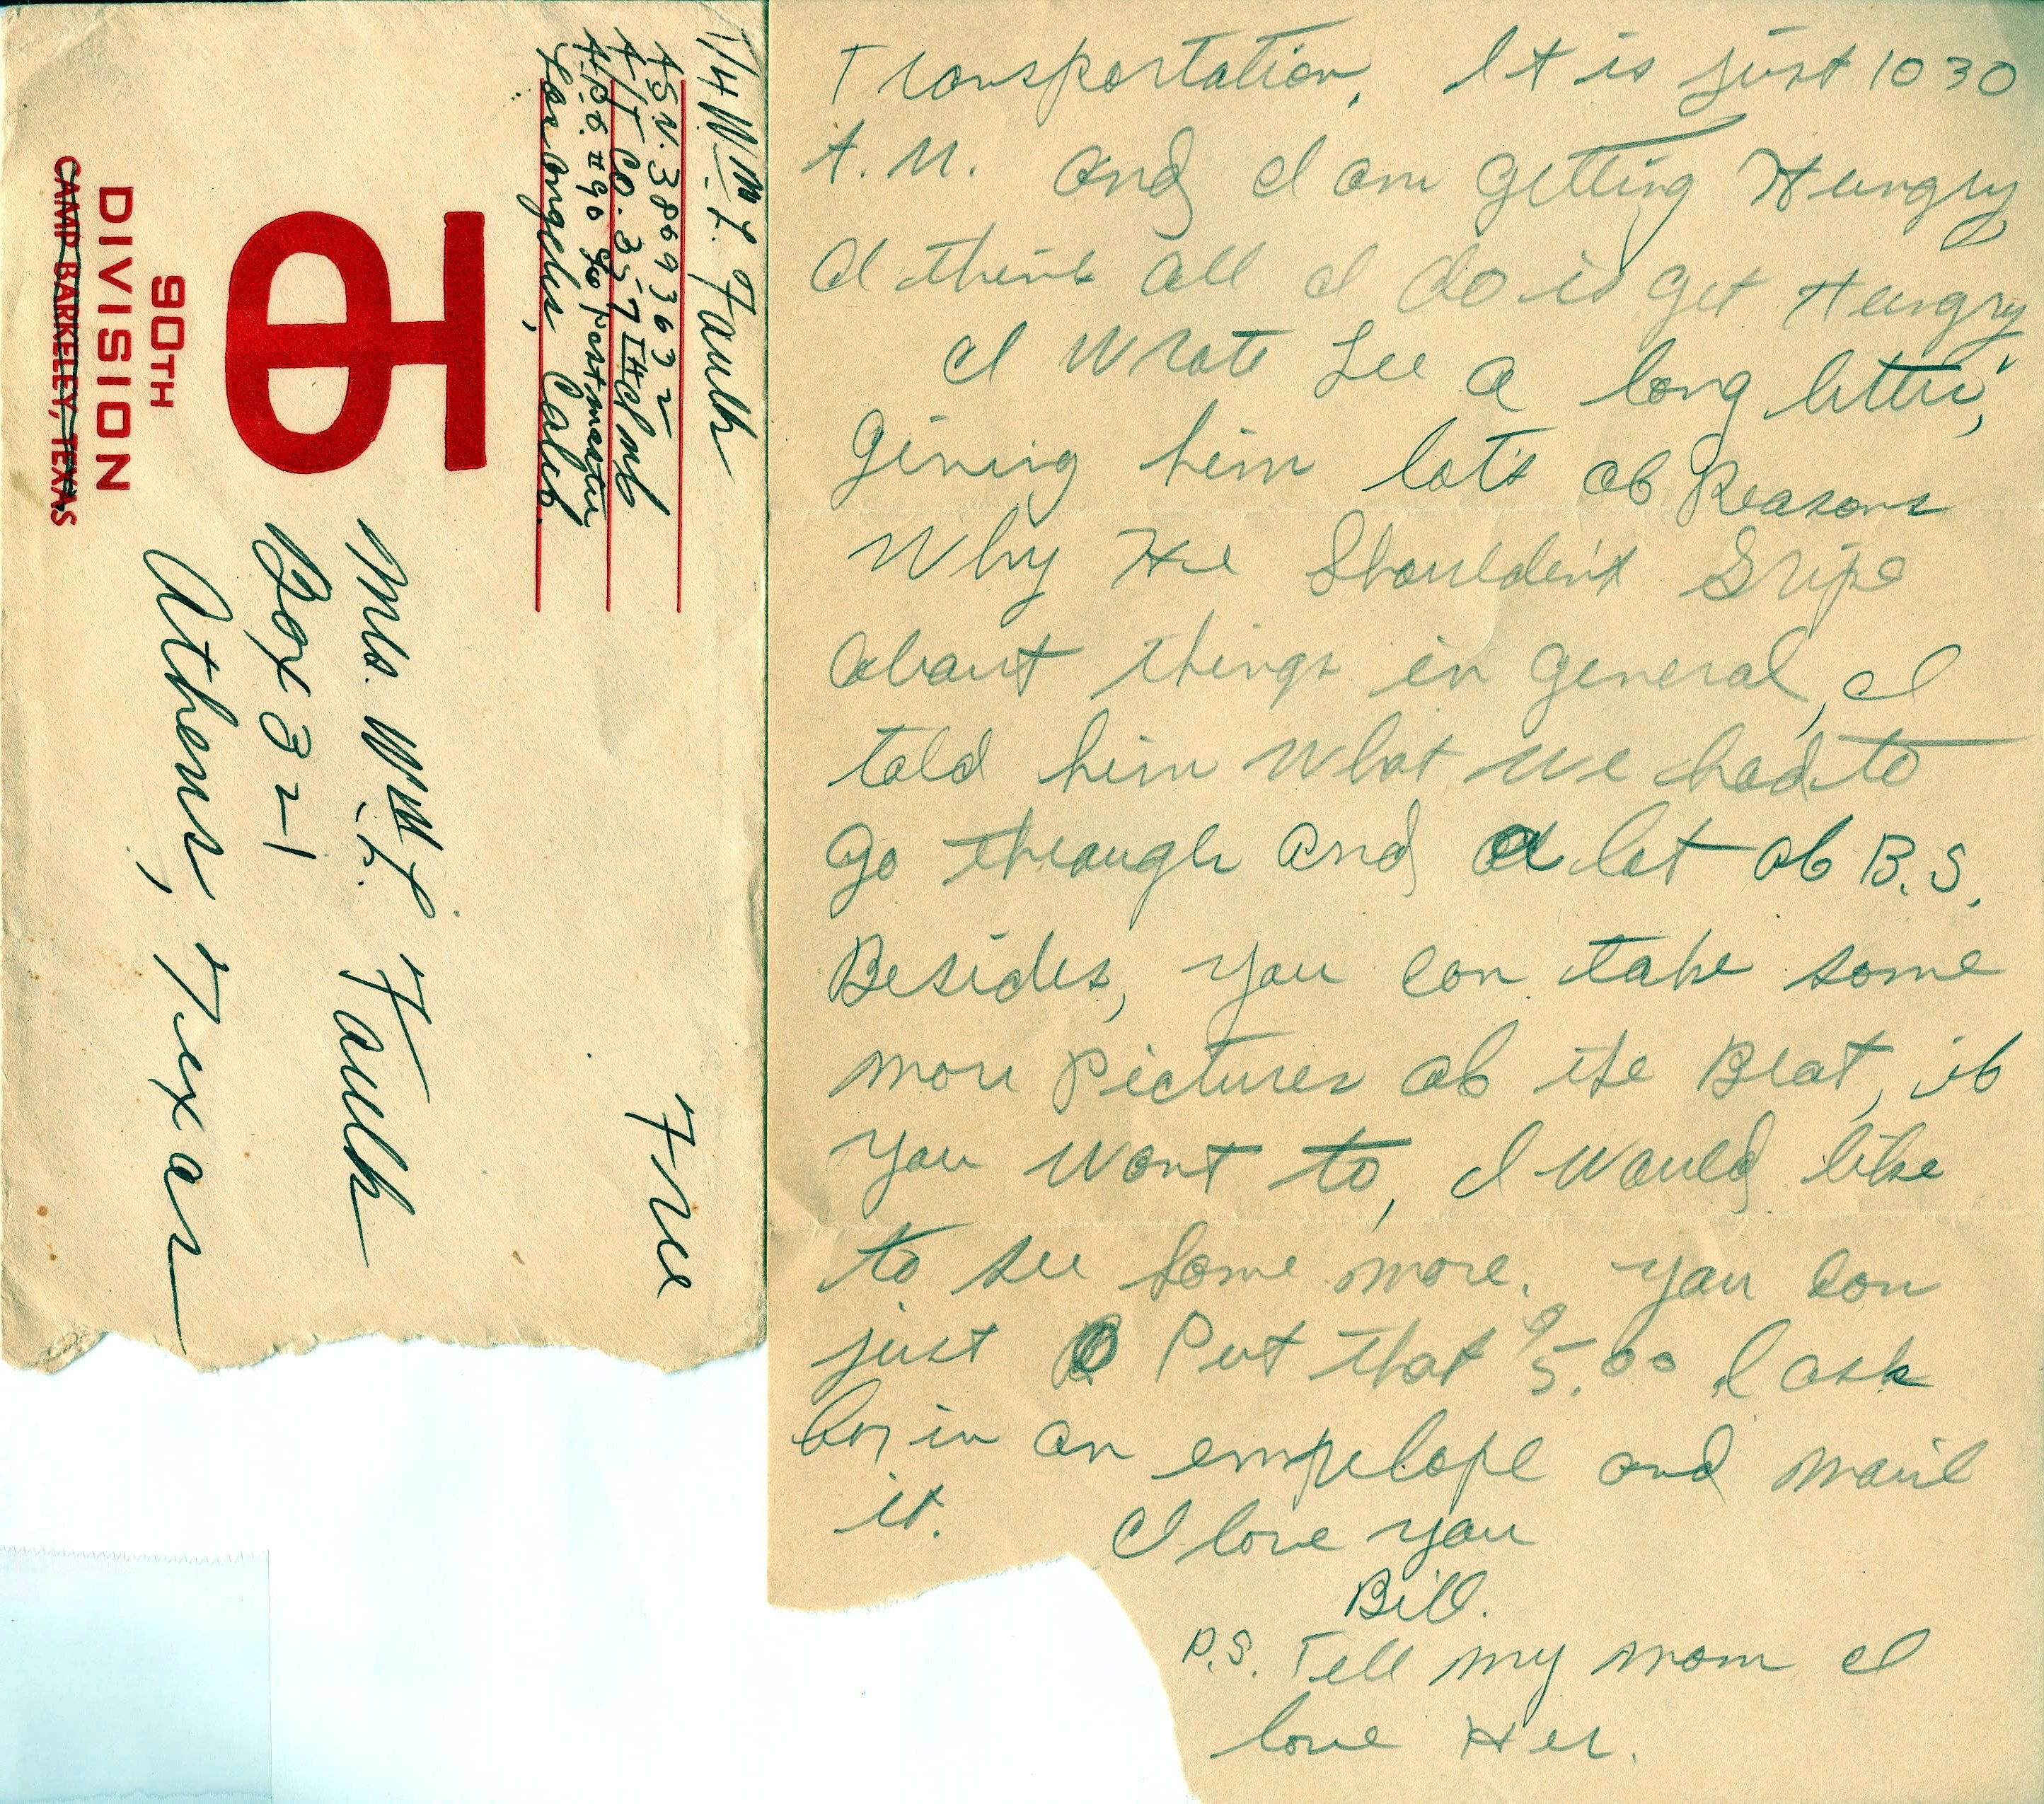 T/4 Wm. L. Faulk
ASN. 38693672
A/T Co. 357 Inf
A.P.O. #90 c/o Postmaster
Los Angeles, Calif.
TO
90TH
DIVISION
CAMP BARKELEY, TEXAS
Free
Mrs. Wm. L. Faulk
Box 321
Athens, Texas
Transportation. It is just 1030
A.M. and I am getting Hungry
I think all I do is get Hungry
I wrote Lee a long letter,
giving him lots of Reasons
Why He Shouldn't Gripe
about things in general, I
told him what we had to
go through and a lot of B.S.
Besides, you can take some
more Pictures of the Brat, if
you want to, I would like
to see some more. you can
just Put that $5.00 I ask
for in an empelope and mail
it. I love you
Bill.
P.S. Tell my mom I
love Her.